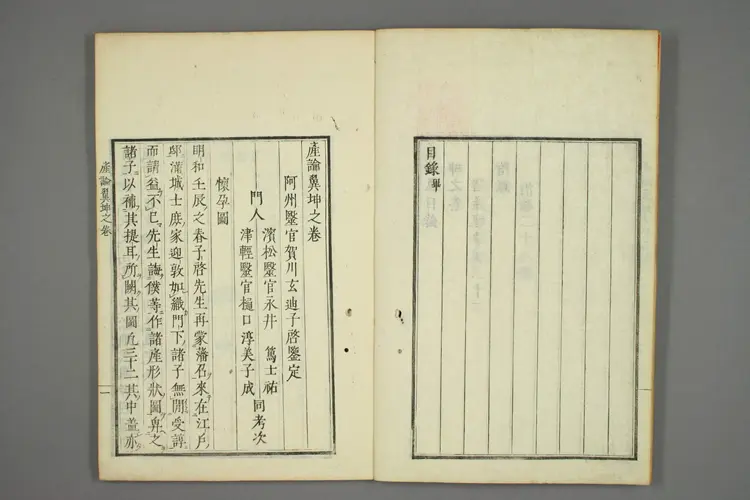 目錄畢
產論翼坤之卷
阿州毉官賀川玄迪子啓鑒定
門人
濱松毉官永井 篤士祐
津輕毉官樋口淳美子成
同考次
懷孕圖
明和壬辰之春子啓先生再蒙藩召來在江戶
邸滿城士庶家迎敦如織門下諸子無閒受諄
而請益不已先生誨僕等作諸產形狀圖畀之
諸子以補其提耳所闕其圖凡三十二其中蓋亦
產論翼坤之卷
一